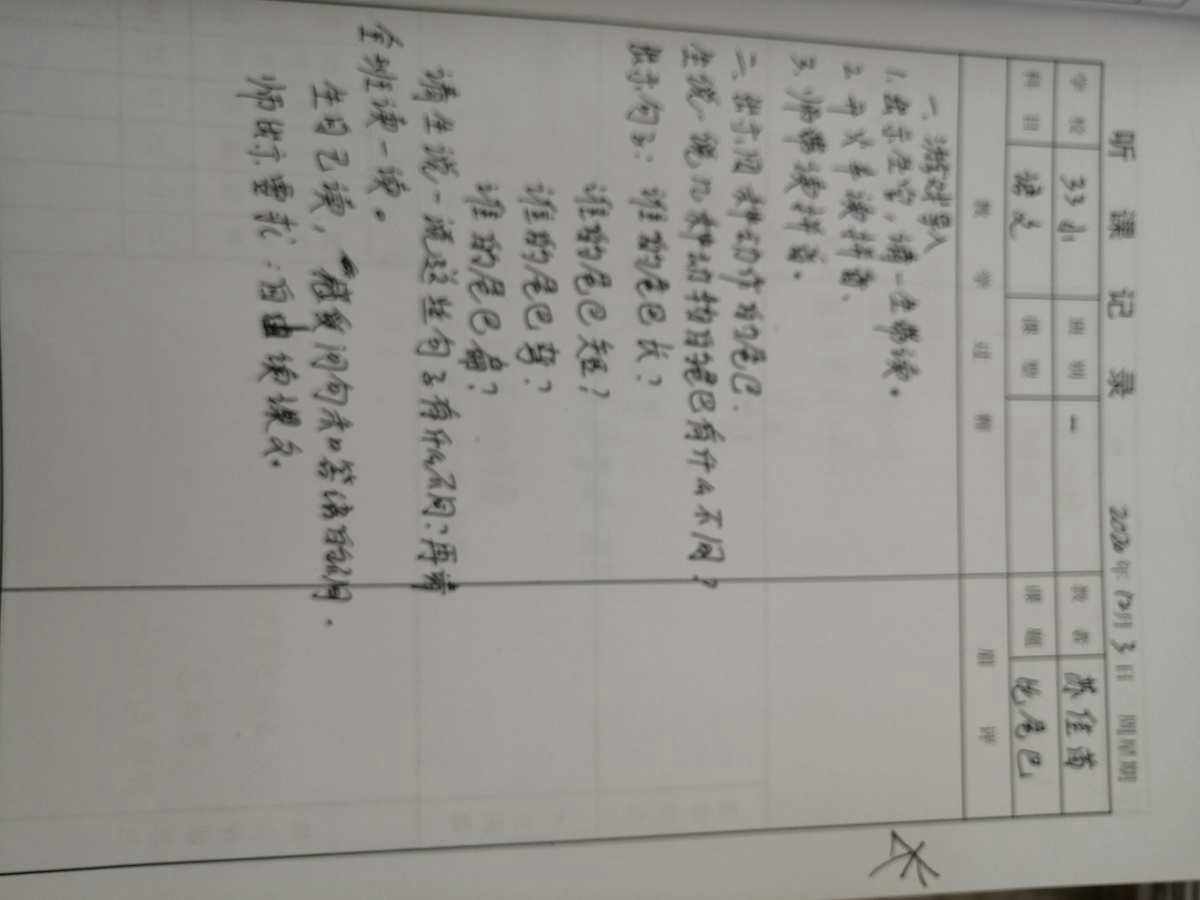 听课记录
2020年12月3日 周星期
学校 班别 一 教者 苏佳
科目 语文 课型 课题 比尾巴
教学过程 简评
一、游戏导入
1.出示生字,请一生带读。
2.开火车读拼音、
3、师带读拼音。
二、出示图 的尾巴.
生说一说几种动物的尾巴有什么不同?
出示句子:谁的尾巴长?
谁的尾巴短?
谁的尾巴弯?
谁的尾巴扁?
请生说一说这些句子有什么不同?再请
全班读一读。
生自己读, 问句和答语的 .
师出示要求:自由读课文.